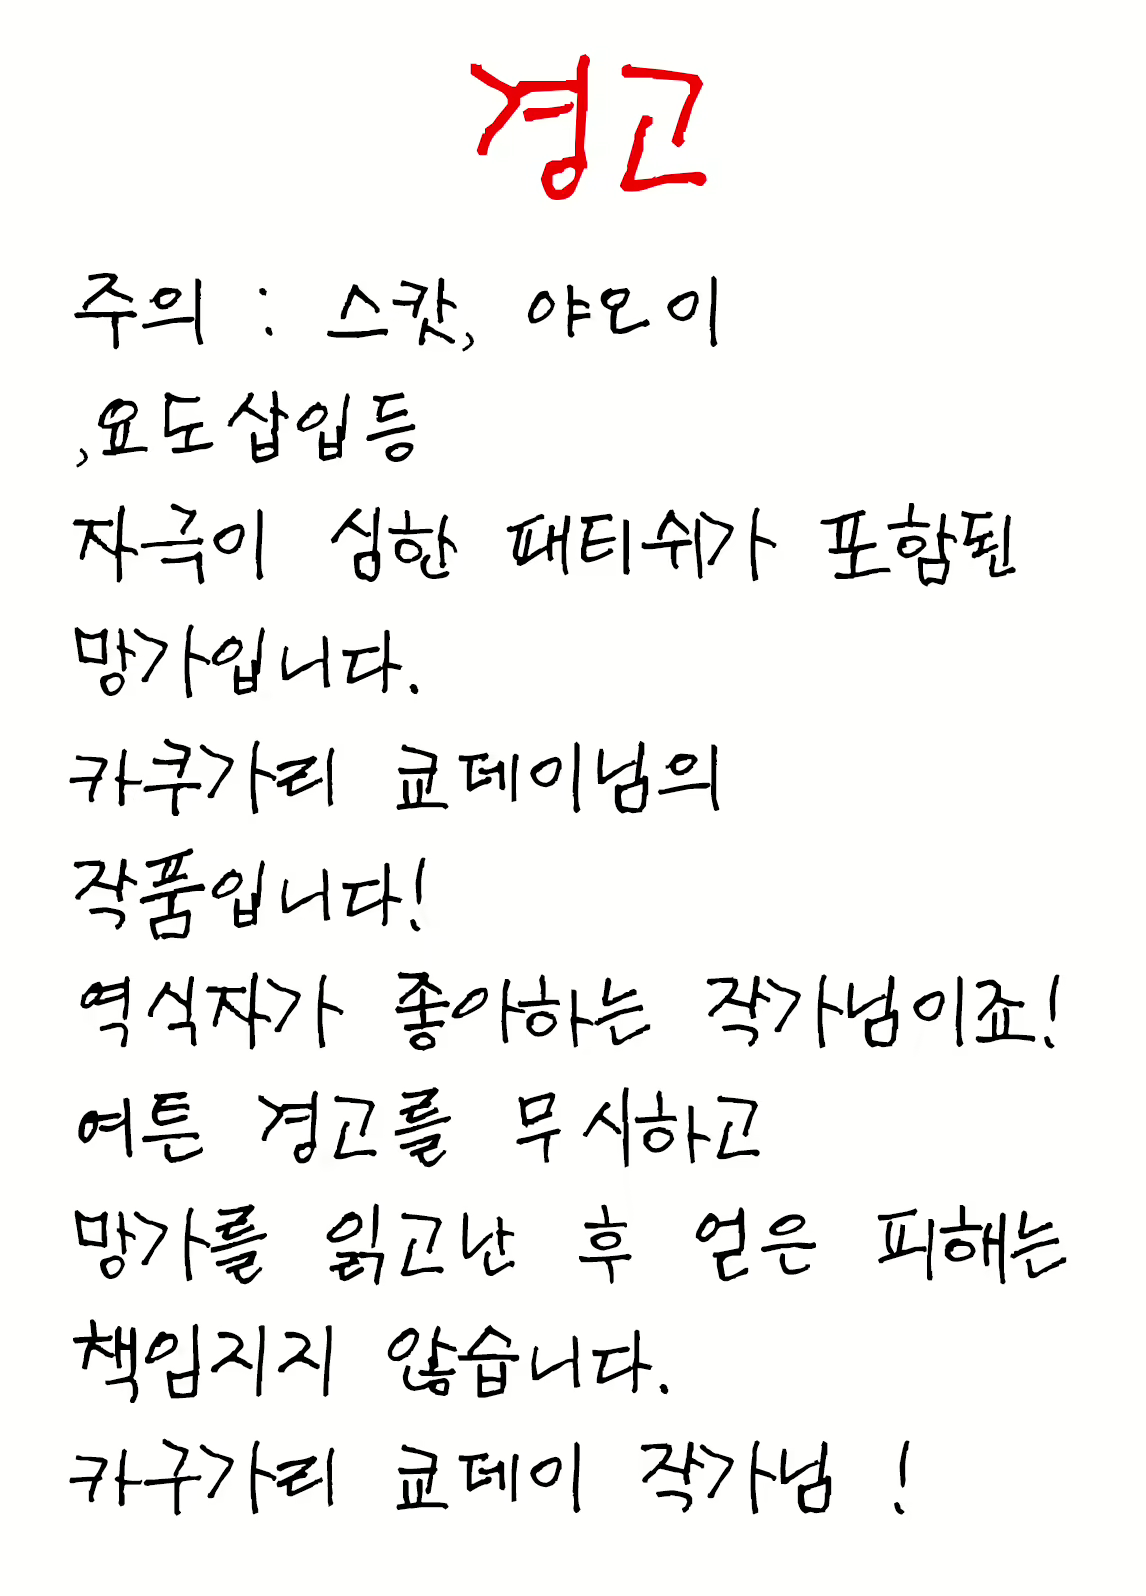 경고
주의 : 스캇, 야오이
,요도삽입등
자극이 심한 패티쉬가 포함된
망가입니다.
카쿠가리 쿄데이님의
작품입니다!
역식자가 좋아하는 작가님이죠!
여튼 경고를 무시하고
망가를 읽고난 후 얻은 피해는
책임지지 않습니다.
카구가리 쿄데이 작가님 !